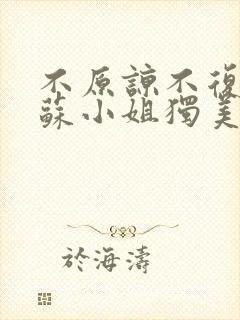 不原諒不復
蘇小姐獨美
於海濤